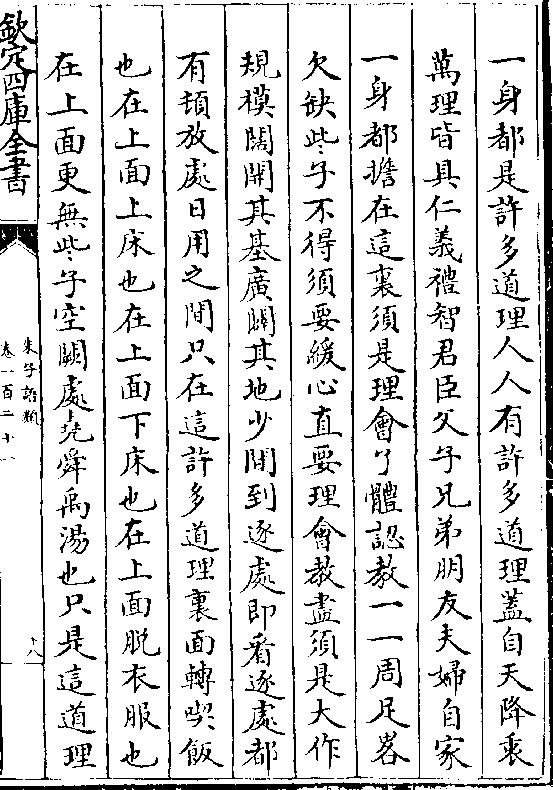 一身都是許多道理人人有許多道理蓋自天降衷
萬理皆具仁義禮智君臣父子兄弟朋友夫婦自家
一身都擔在這裏須是理會了體認教一一周足畧
欠缺些子不得須要緩心直要理會教盡須是大作
規模闊開其基廣闢其地少間到逐處即看逐處都
有頓放處日用之間只在這許多道理裏面轉喫飯
也在上面上床也在上面下床也在上面脱衣服也
在上面更無些子空闕處堯舜禹湯也只是這道理
欽定四庫全書
朱子語類
卷一百二十一
十八